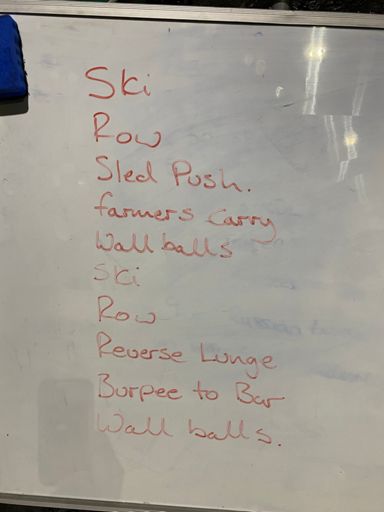 Ski
Row
Sled Push.
farmers Carry
Wall balls
Ski
Row
Reverse Lunge
Burpee to Bar
Wall balls.